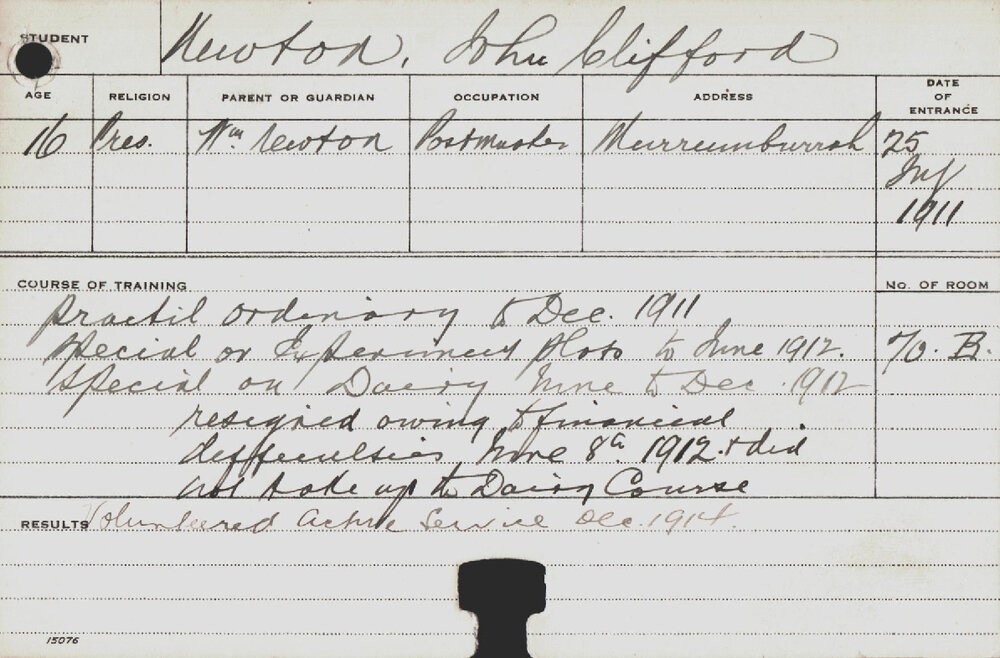 STUDENT Newton, John Clifford
AGE RELIGION PARENT OR GUARDIAN OCCUPATION ADDRESS DATE OF ENTRANCE
16 Pres. Wm Newton Postmaster Murrumburrah 25
July
1911
COURSE OF TRAINING No. OF ROOM
ordinary to Dec. 1911
Special on Experiment plots to June 1912. 70. B.
Special on Dairy June to Dec. 1912
resigned owing to financial
difficulties June 8th 1912 & did
not take up the Dairy Course
RESULTS Volunteered Active Service Dec. 1914.
15076